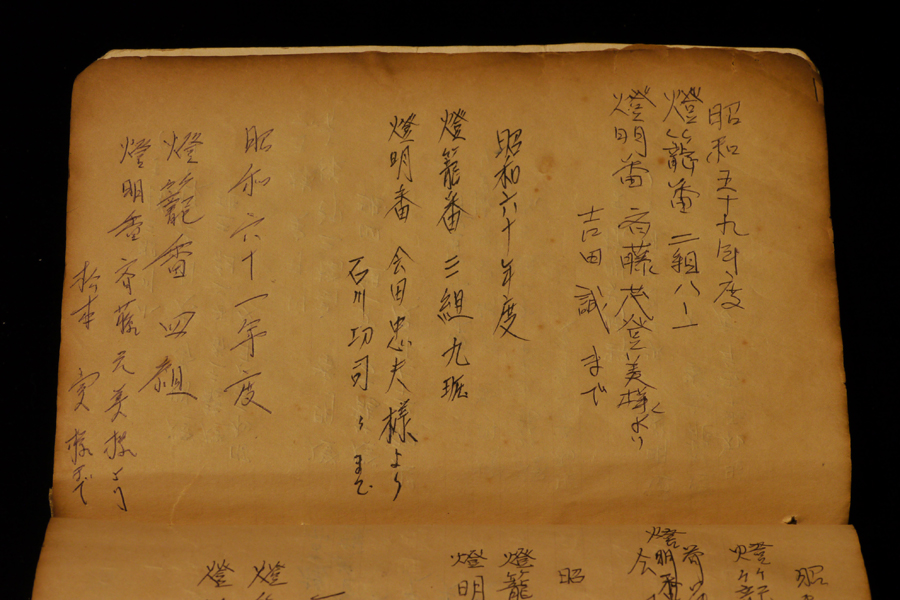 昭和五十九年度
燈籠番 二組八ー一
燈明番 斉藤茂登美様より
吉田 誠 まで
昭和六十年度
燈籠番 三組九班
燈明番 会田忠夫様より
石川功司〃まで
昭和六十一年度
燈籠番 四組
燈明番 斉藤元美様より
松本 実 様まで
昭
燈籠
燈明番
会
昭
燈籠
燈明
燈
燈